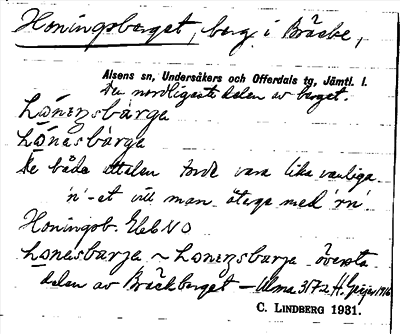 Honingsberget, berg i Bräcke,
Alsens sn, Undersåkers och Offerdals tg, Jämtl. l.
Den nordligaste delen av berget.
Lonengsbárga
Lonasbárga
De båda uttalen torde vara lika vanliga
'n'-et vill man återge med 'rn'
Honingsb. Ekbl NO
Lonasbarga ~ Lonengsbarga översta
delen av Bräckberget — Ulma 317:2 H. Geijer 1916
C. LINDBERG 1931.